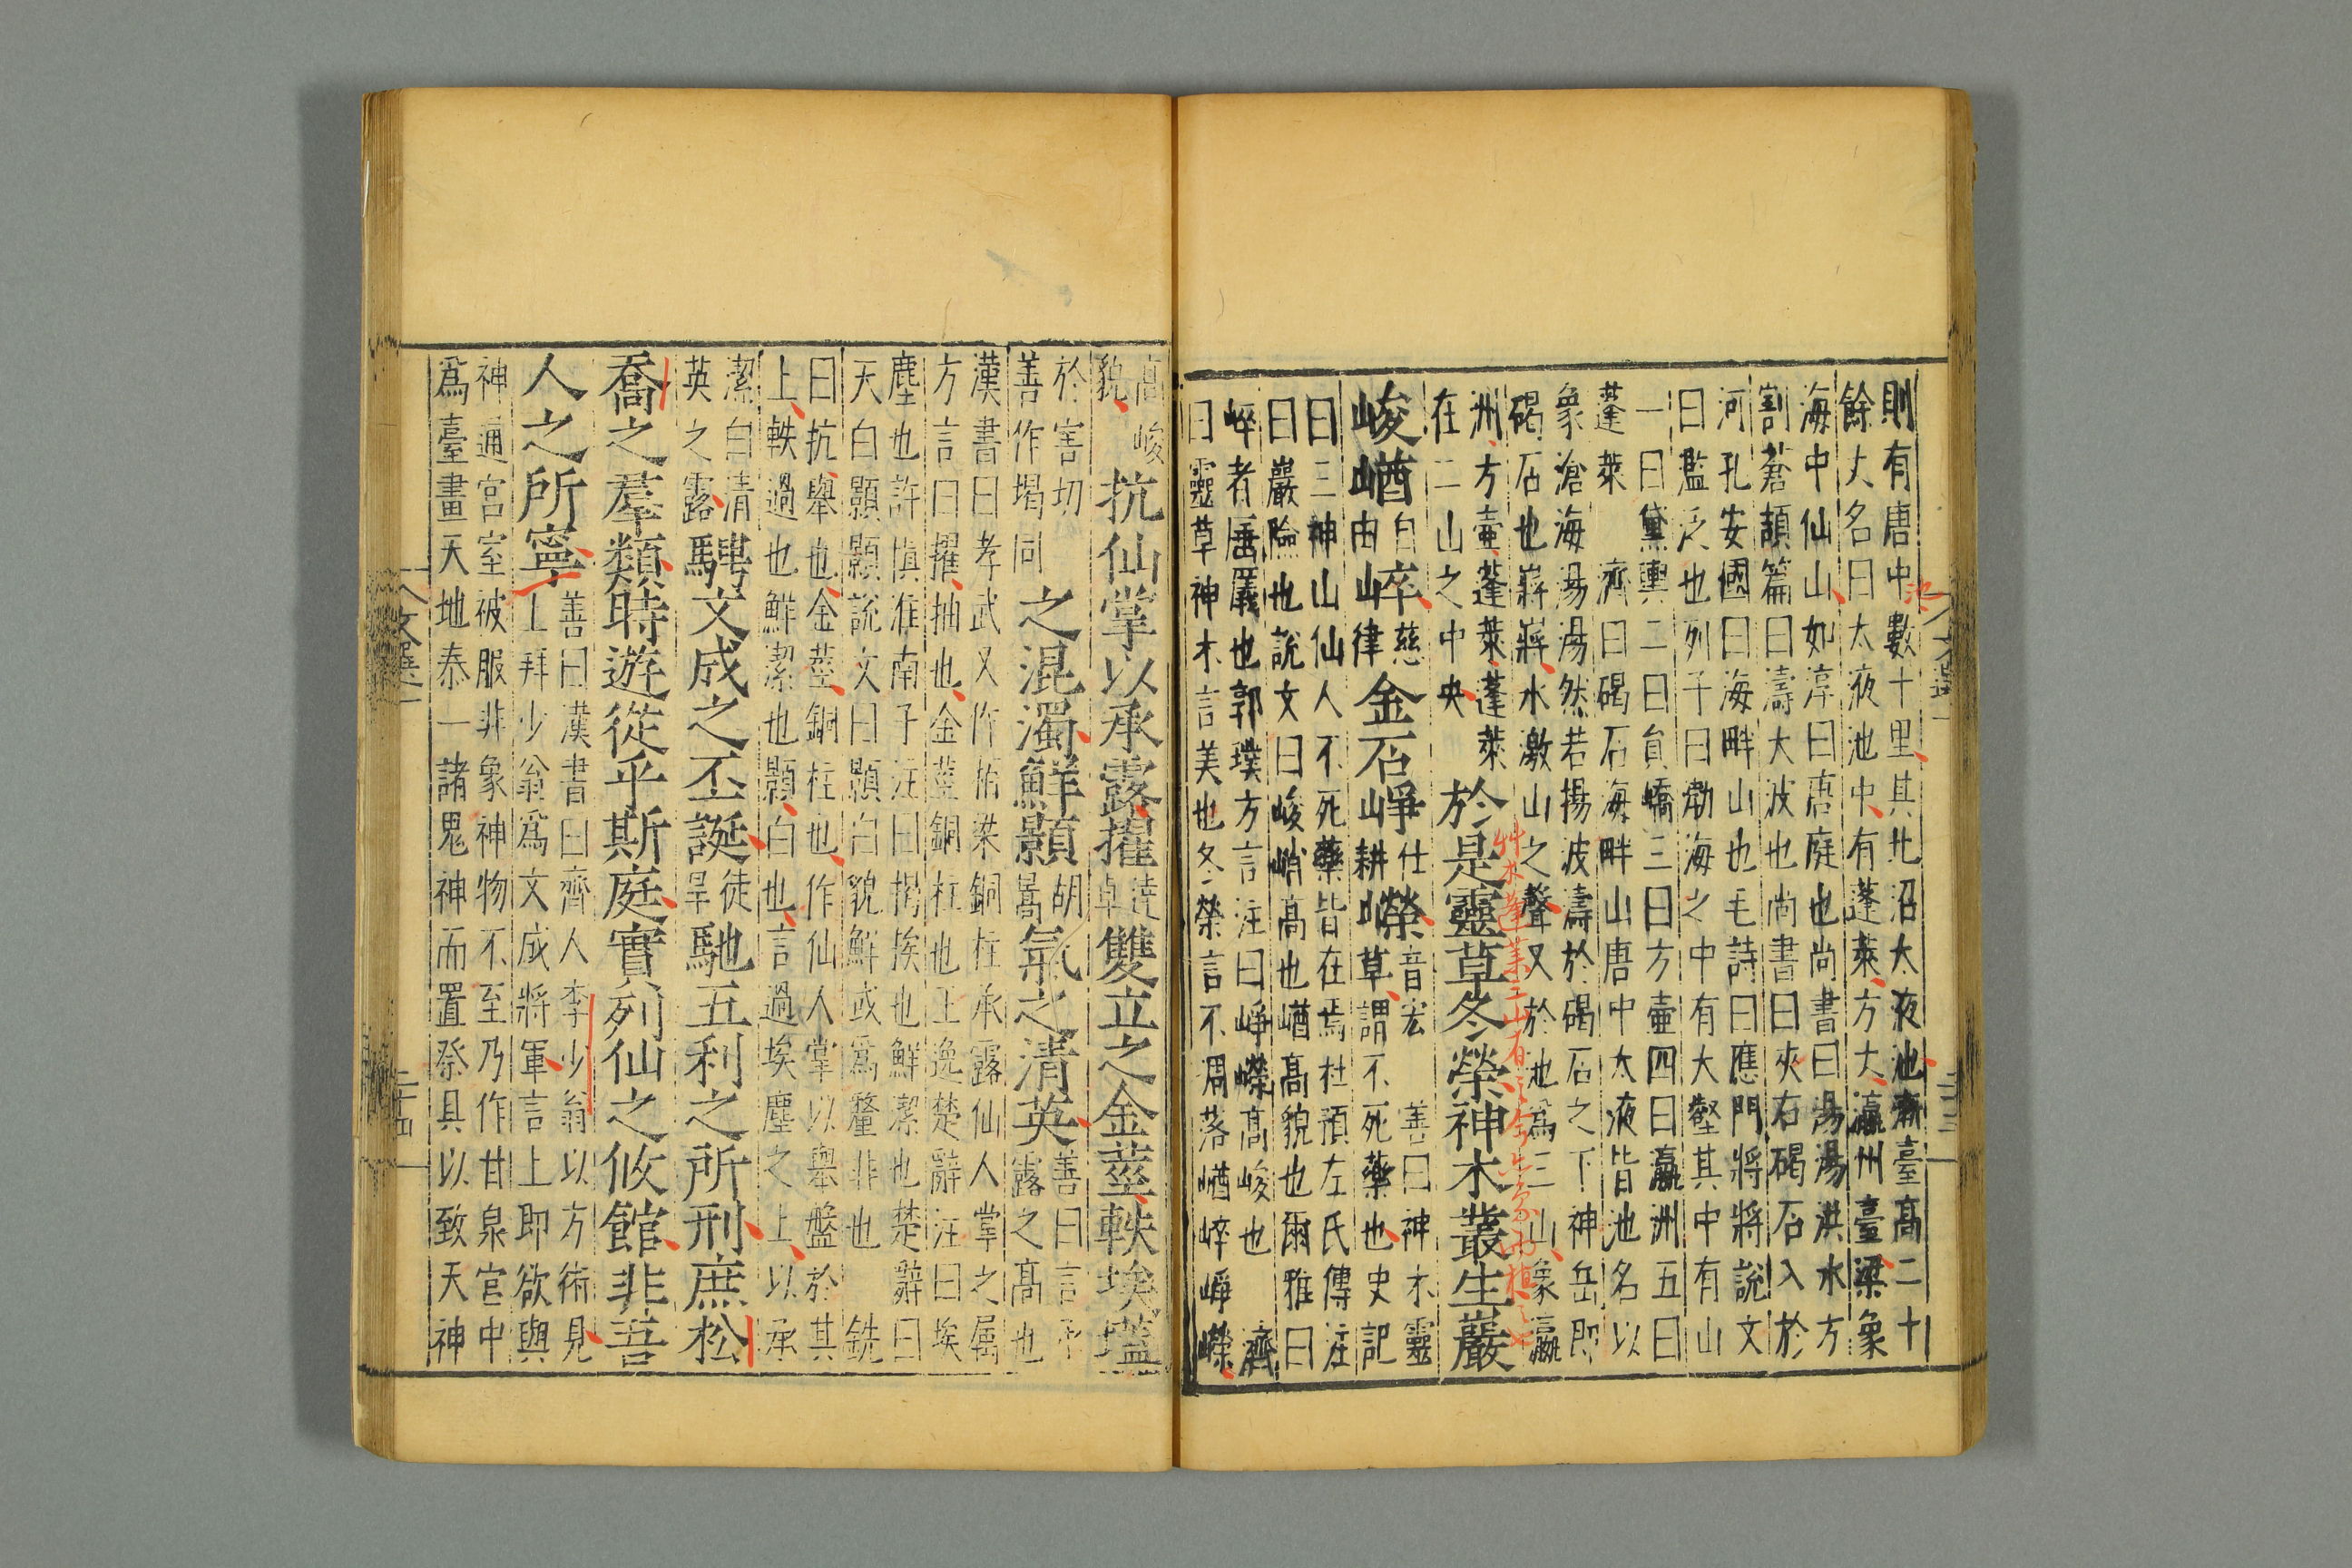 則有唐中數十里其北沼太液池漸臺高二十
餘丈名曰太液池中有蓬萊方丈瀛州臺梁象
海中仙山如淳曰唐庭也尚書曰湯湯洪水方
割蒼頡篇曰濤大波也尚書曰夾右碣石入於
河孔安國曰海畔山也毛詩曰應門將將說文
曰濫泛也列子曰勃海之中有大壑其中有山
一曰黛輿二曰員嶠三曰方壷四曰瀛洲五曰
蓬萊 濟曰碣石海畔山唐中太液皆池名以
象滄海湯湯然若揚波濤於碣石之下神岳即
碣石也嶈嶈水激山之聲又於池為三山象瀛
洲方壷蓬萊蓬萊
在二山之中央
於是靈草冬榮神木叢生巖
草木蓬萊三山有之
峻崷
自由
崒
慈律
金石崢
仕耕
嶸
音宏 善曰神木靈
草謂不死藥也史記
曰三神山仙人不死藥皆在焉杜預左氏傳注
曰巖險也說文曰峻峭高也崷高貌也爾雅曰
崒者厜㕒也郭璞方言注曰崢嶸高峻也 濟
曰靈草神木言美也冬榮言不凋落崷崒崢嶸
高峻
貌
抗仙掌以承露擢
達卓
雙立之金莖軼埃堨
於害切
善作堨同
之混濁鮮顥
胡暠
氣之清英
善曰言承
露之高也
漢書曰孝武又作栢梁銅柱承露仙人掌之屬
方言曰擢抽也金莖銅柱也王逸楚辭注曰埃
塵也許愼淮南子注曰堨埃也鮮潔也楚辭曰
天白顥顥說文曰顥白貌鮮或爲釐非也 銑
曰抗舉也金莖銅柱也作仙人掌以舉盤於其
上軼過也鮮潔也顥白也言過埃塵之上以承
潔白清
英之露
騁文成之丕誕
徒旱
馳五利之所刑庶松
喬之羣類時遊從乎斯庭實列仙之攸館非吾
人之所寧
善曰漢書曰齊人李少翁以方術見
上拜少翁爲文成將軍言上即欲與
神通宮室被服非象神物不至乃作甘泉宮中
爲臺畫天地泰一諸鬼神而置祭具以致天神
文選一
二十三
文選一
二十四